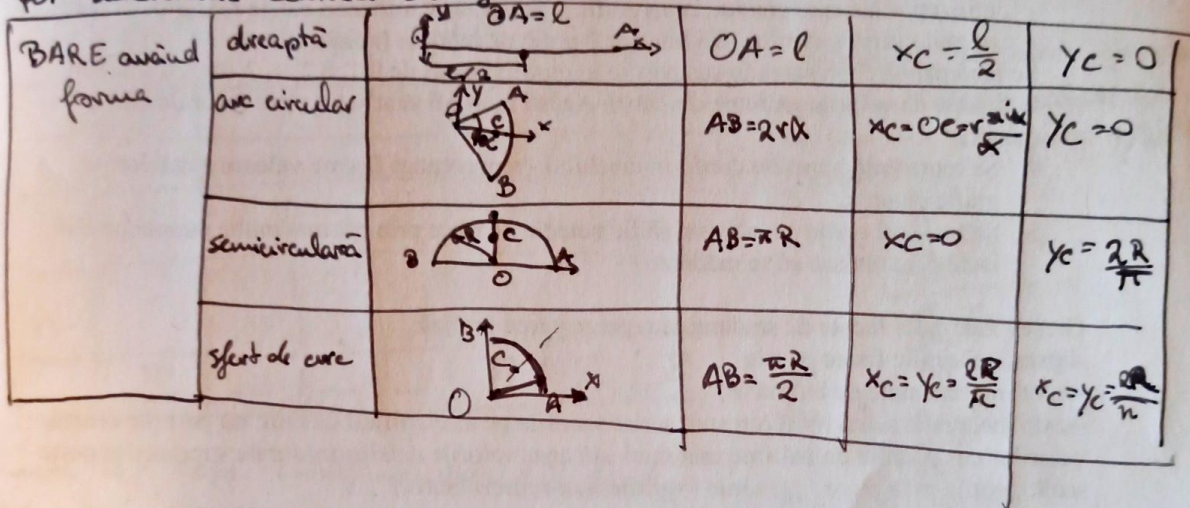 BARE având
forma
dreaptă
OA = l
l/2
OA = l
xC = l/2
yC = 0
arc circular
y
A
O
C
x
B
AB = 2rα
xC = OC = r
yC = 0
semicirculară
B
R
C
A
O
AB = πR
xC = 0
yC = 2R/π
sfert de cerc
B
C
x
O
A
AB = πR/2
xC = yC = 2R/π
xC = yC = 2R/π